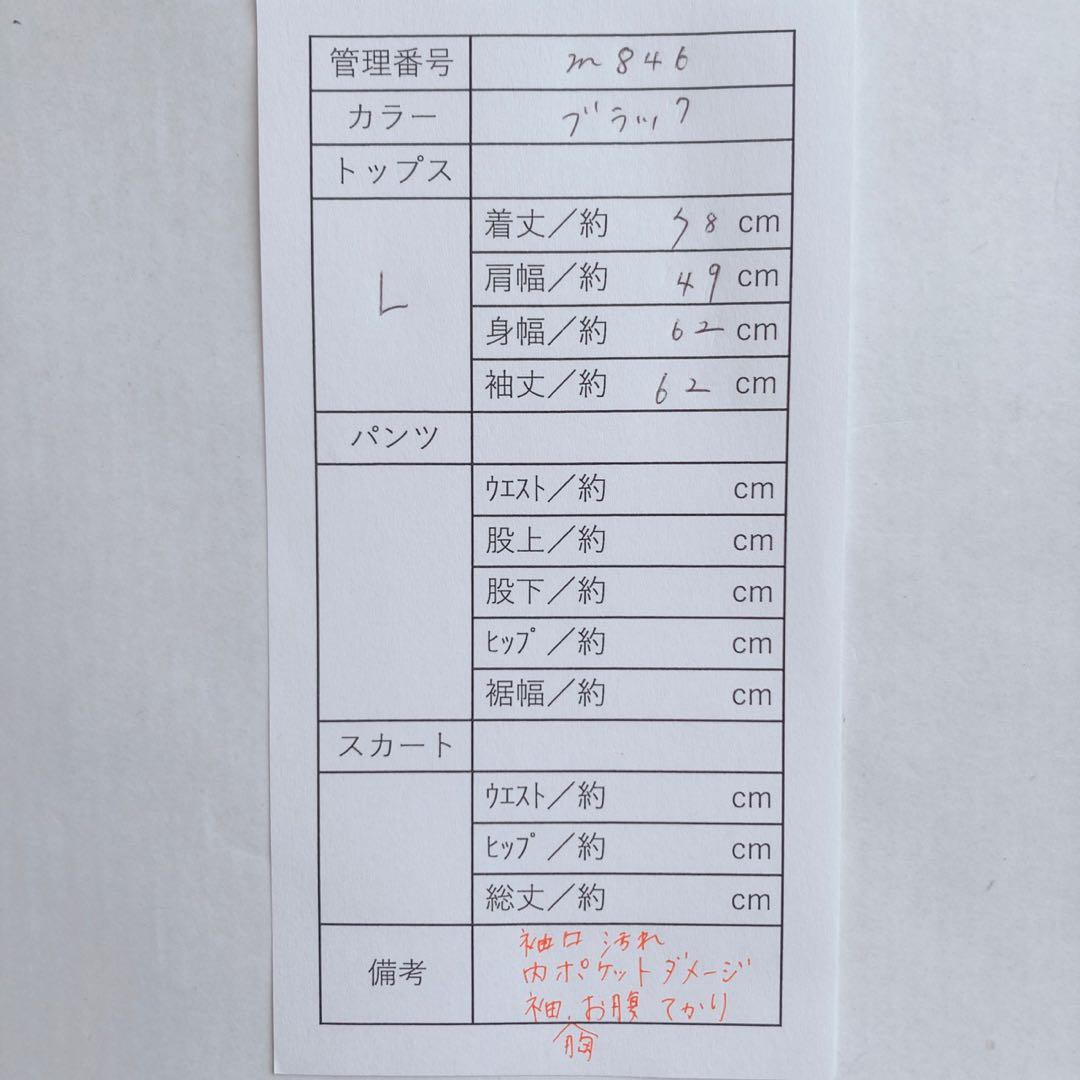 管理番号 m846
カラー ブラック
トップス
L
着丈／約 58 cm
肩幅／約 49 cm
身幅／約 62 cm
袖丈／約 62 cm
パンツ
ｳｴｽﾄ／約 cm
股上／約 cm
股下／約 cm
ﾋｯﾌﾟ／約 cm
裾幅／約 cm
スカート
ｳｴｽﾄ／約 cm
ﾋｯﾌﾟ／約 cm
総丈／約 cm
備考
袖口 汚れ
内ポケットダメージ
袖、お腹 てかり
胸